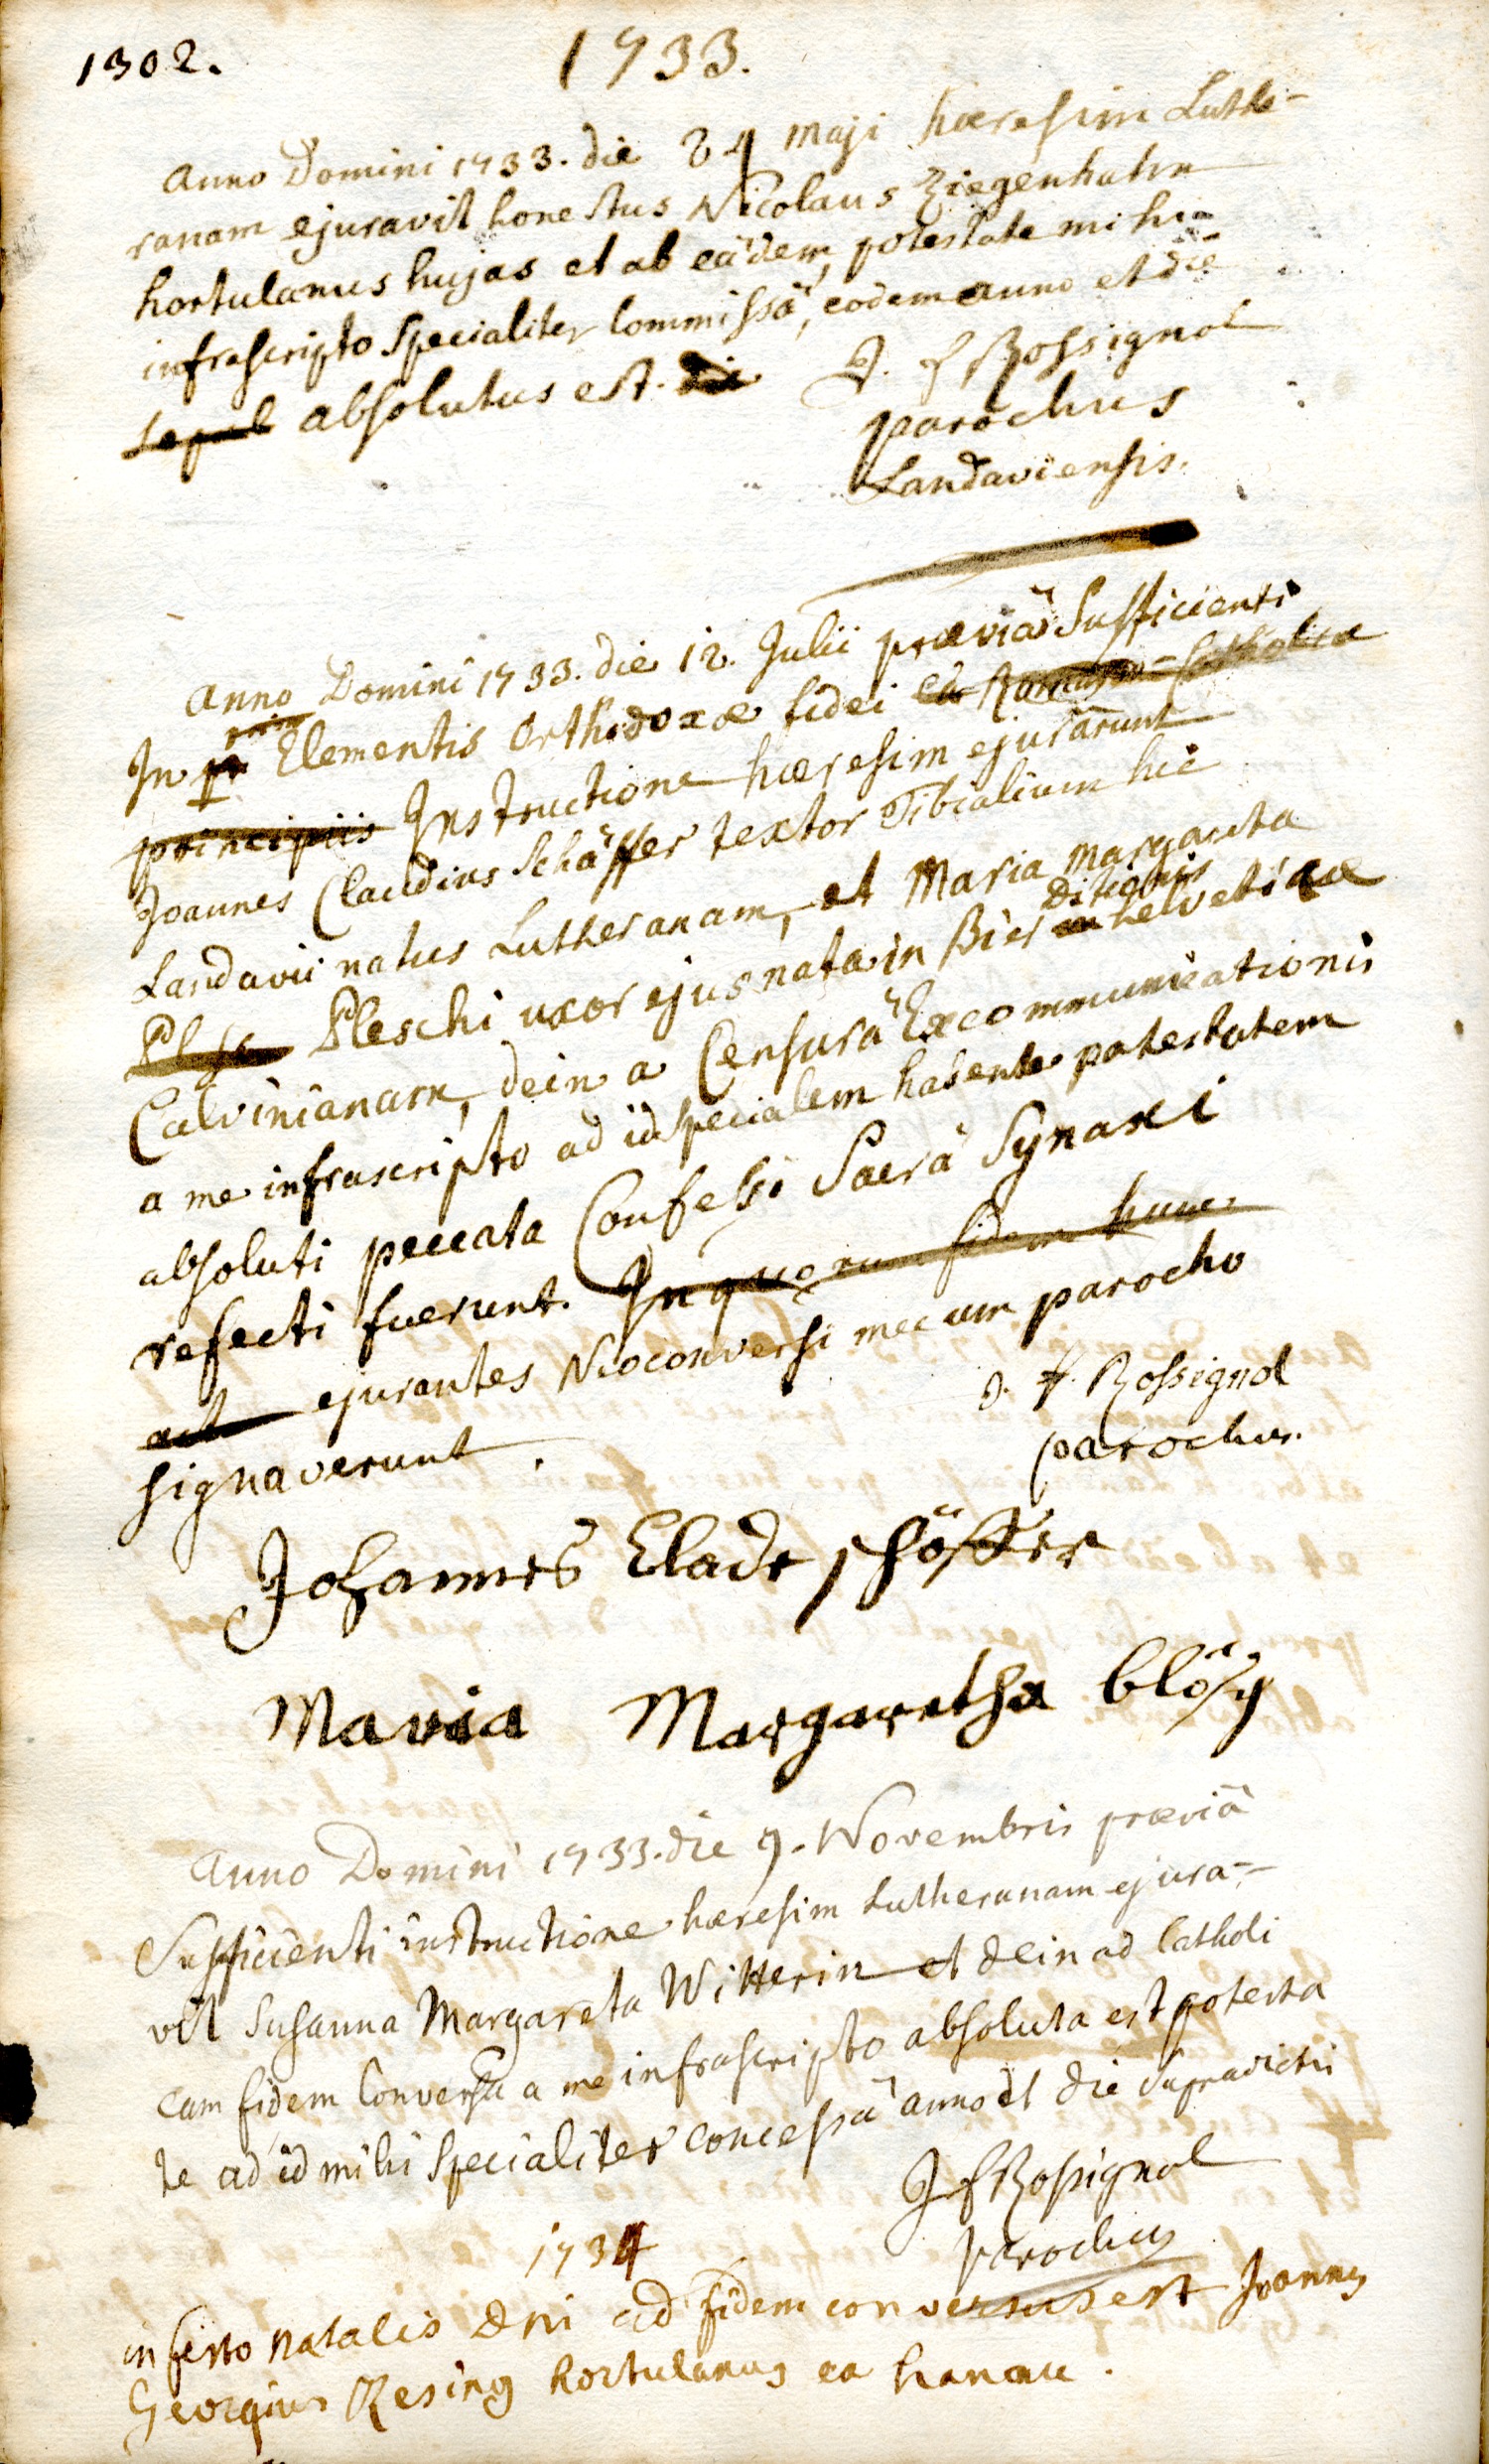 1302.
1733.
Anno Domini 1733. die 24 Maji hæresim Luthe-
ranam ejuravit honestus Nicolaus Ziegenhahn
hortulanus hujas et ab eâdem, potestate mihi
infrascripto Specialiter Commissâ, eodem anno et die
absolutus est.
J. f Rossignol
parochus
Landaviensis.
Anno Domini 1733. die 12. Julii præviâ Sufficienti
In Elementis Orthodoxæ fidei Romano-Catholicæ
principiis Instructione hæresim ejurârunt
Joannes Claudius Schäffer textor Tibialium hic
Landavii natus Lutheranam, et Maria Margareta
Ditionis
Pleschi uxor ejus nata in Biel helveticæ
Calvinianam, dein a Censurâ Excommunicationis
a me infrascripto ad id specialem habente potestatem
absoluti peccata Confessi Sacrâ Synaxi
refecti fuerunt. In quorum fidem hunc
ejurantes Neoconversi mecum parocho
signaverunt.
J. f. Rossignol
parochus.
Johannes Clade schöffer
Maria Margaretha blösy
Anno Domini 1733. die 9. Novembris præviâ
Sufficienti instructione hæresim Lutheranam ejura-
vit Susanna Margareta Witterin et dein ad Catholi
cam fidem Conversa a me infrascripto absoluta est potesta
te ad id mihi Specialiter concessâ anno et die supradictis
J f Rossignol
parochus
1734
in festo natalis Dni ad fidem conversus est Joannes
Georgius Resing hortulanus ex hanau.